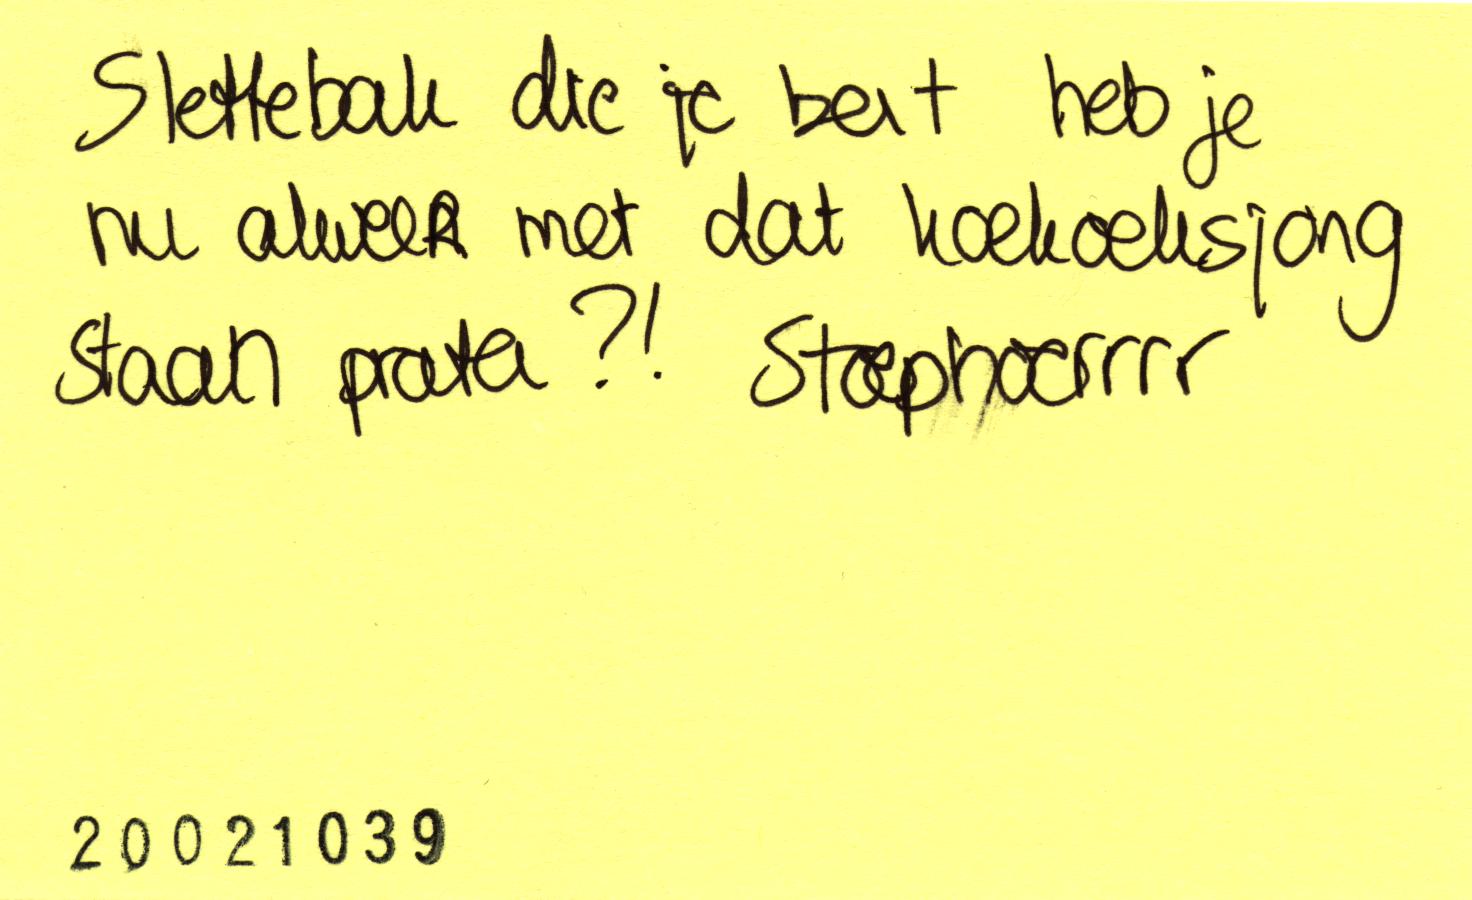 Slettebak die je bent heb je
nu alweer met dat koekoeksjong
staan praten?! Stoephoerrrr
20021039